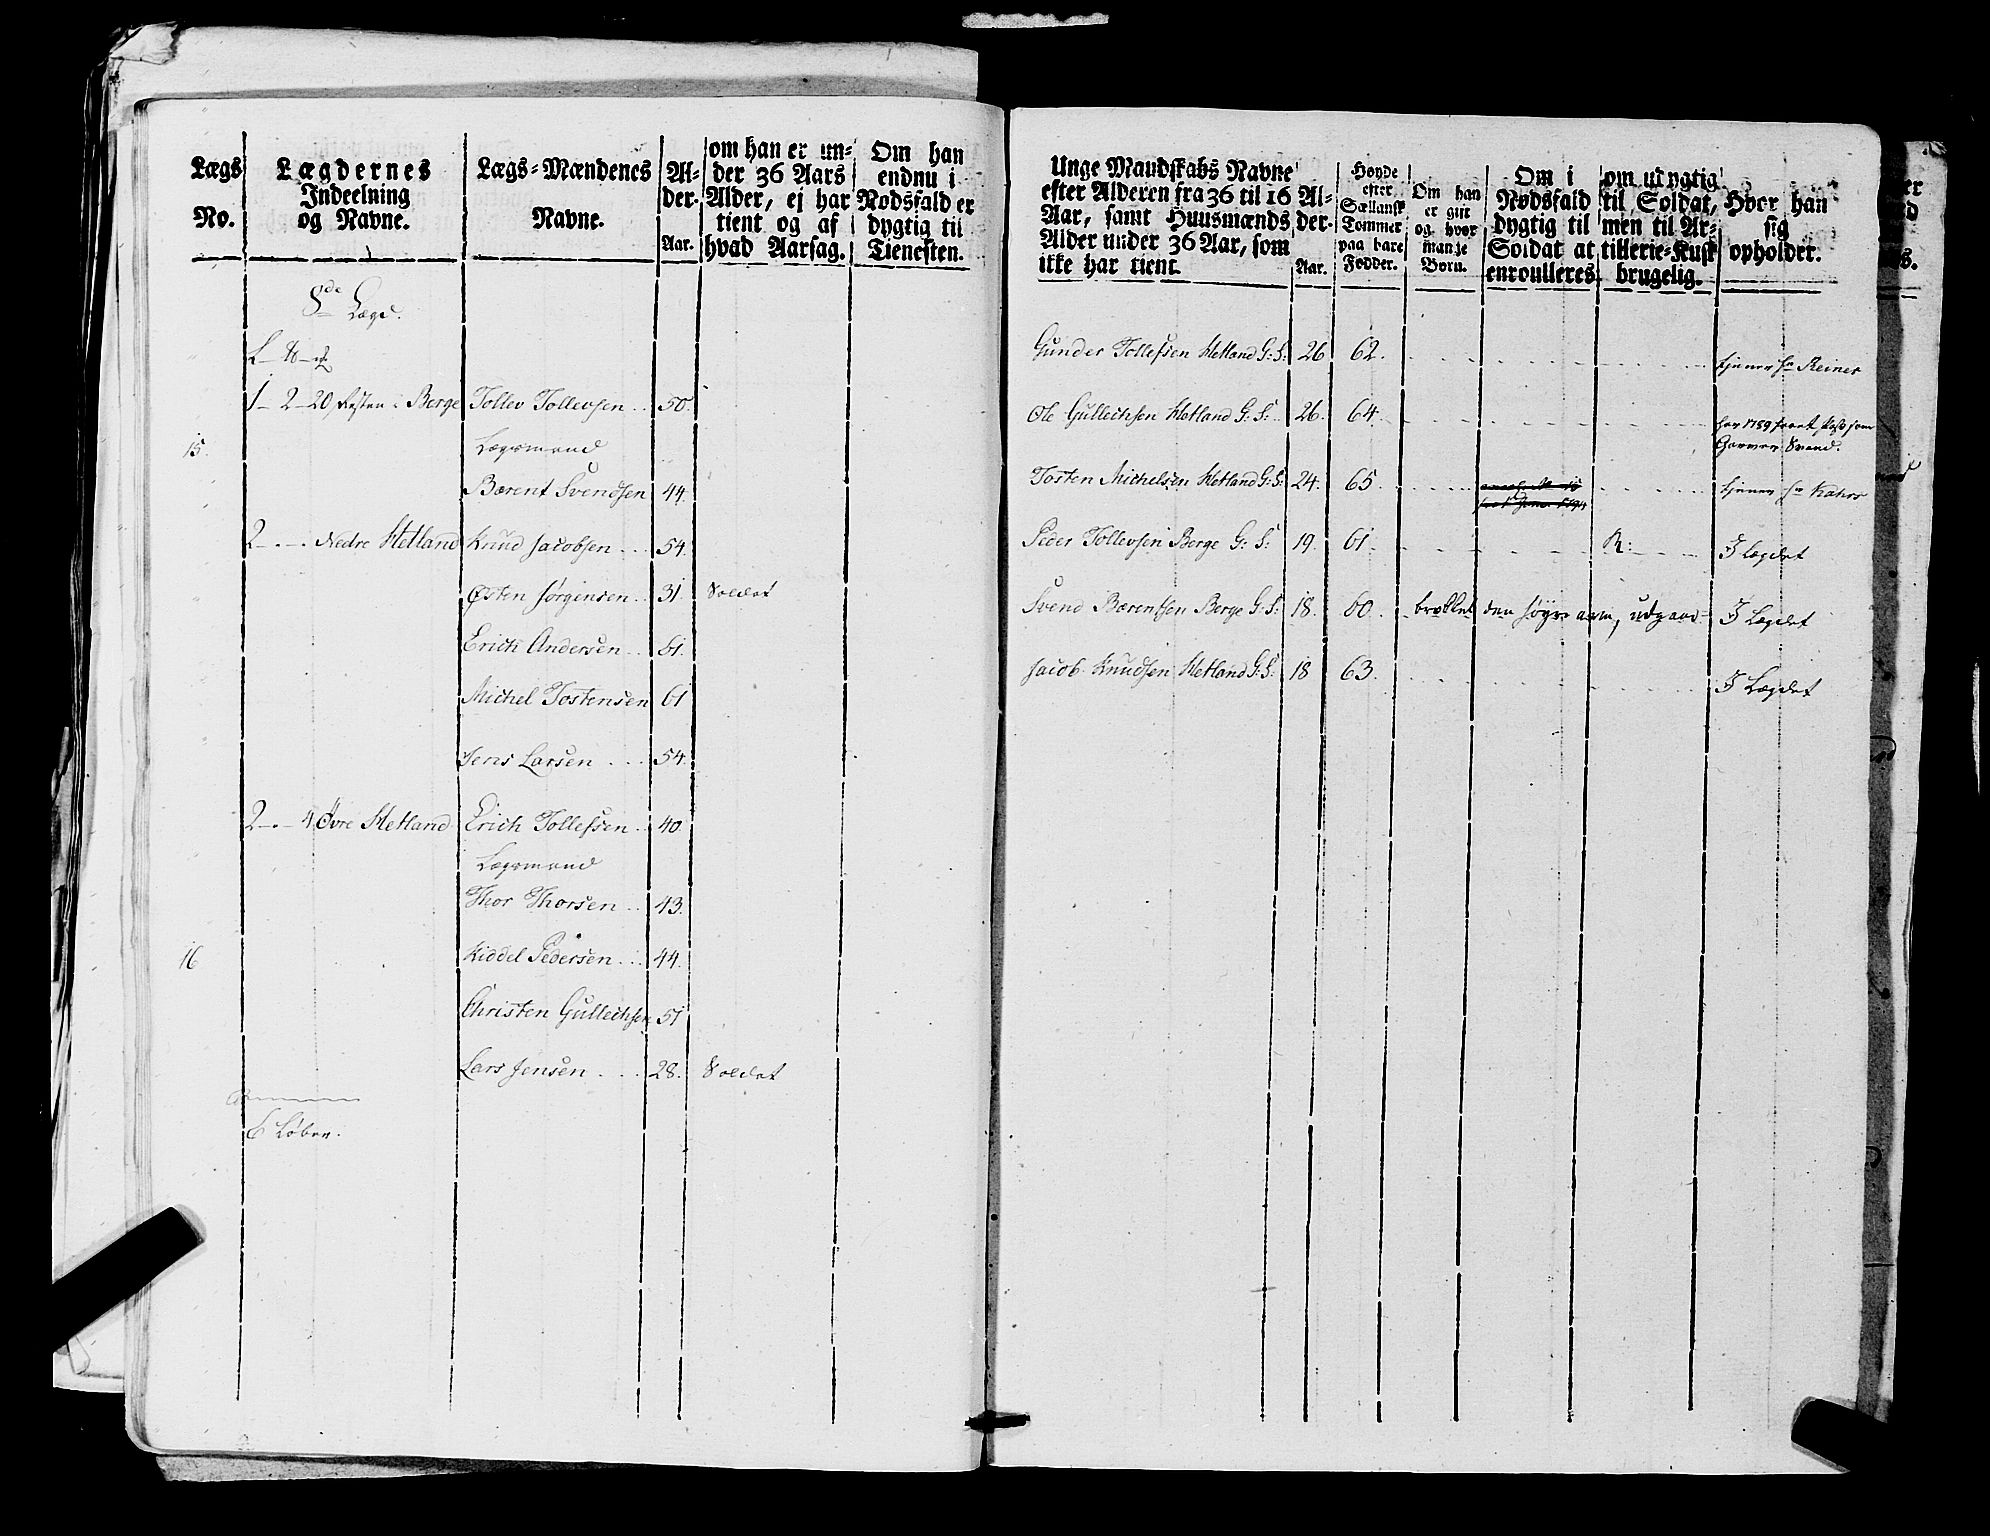 Lægs
No.
Lægdernes
Indeelning
og Navne.
Lægs-Mændenes
Navne.
Al-
der.
Aar.
om han er un-
der 36 Aars
Alder, ej har
tient og af
hvad Aarsag.
Om han
endnu i
Nødsfald er
dygtig til
Tienesten.
8de Lægd.
1 - 2 - 20 Resten i Berge Tollev Tollevsen .. 50.
15. Lægsmand
Bærent Svendsen 44.
2 - . - Nedre Hetland Knud Jacobsen ... 54.
Østen Jørgensen .. 31. Soldat
Erich Andersen .. 61.
Michel Tostensen 61
Jens Larsen ... 54.
2 - . - 4 Øvre Hetland Erich Tollefsen .. 40.
Lægsmand
Thor Thorsen .. 43.
16 Kiddel Pedersen ... 44.
Christen Gullichsen 51
Lars Jensen .... 28. Soldat
6 Løber.
Unge Mandskabs Navne
efter Alderen fra 36 til 16
Aar, samt Huusmænds
Alder under 36 Aar, som
ikke har tient.
Al-
der.
Aar.
Høyde
efter
Sællansk
Tommer
paa bare
Fødder.
Om han
er gift
og hvor
mange
Børn.
Om i
Nødsfald
dygtig til
Soldat at
enroulleres
om udygtig
til Soldat,
men til Ar-
tillerie-Kusk
brugelig.
Hvor han
sig
opholder.
Gunder Tollefsen Hetland G: S: 26 62. tjener hr Reiner
Ole Gullichsen Hetland G: S: 26. 64. har 1789 faaet Pas som
Garver Svend.
Tosten Michelsen Hetland G: S: 24. 65. tjener hr Kahrs
Peder Tollevsen Berge G: S: 19. 61. R: I Lægdet
Svend Bærentsen Berge G: S: 18. 60. brækket den høyre arm, udgaar I Lægdet
Jacob Knudsen Hetland G: S: 18 63. I Lægdet